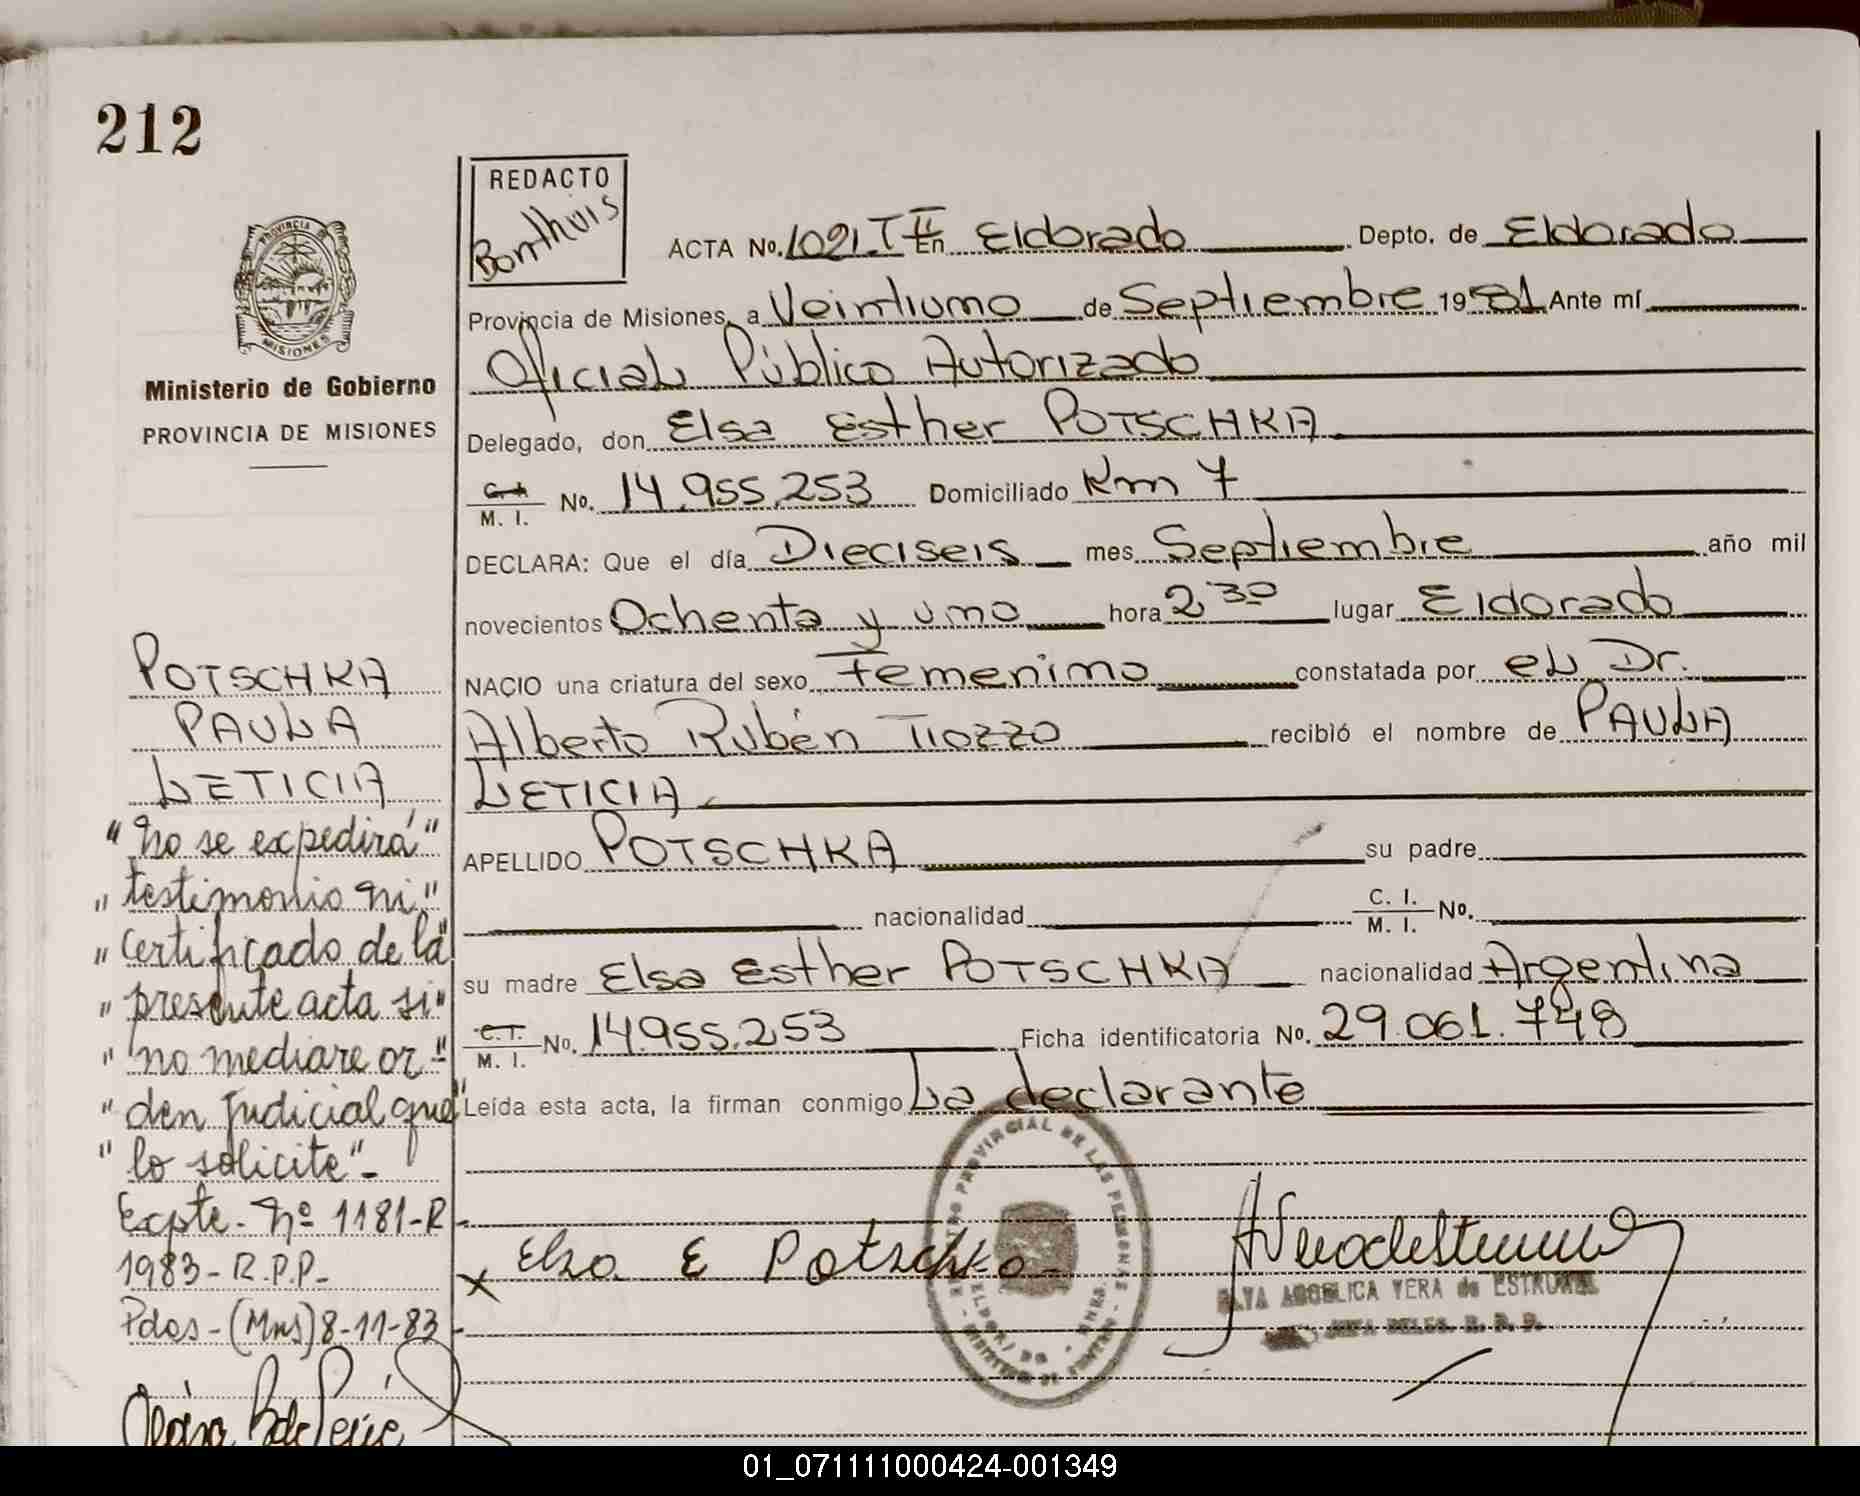 212
REDACTO
Bonthuis
PROVINCIA DE
MISIONES
Ministerio de Gobierno
PROVINCIA DE MISIONES
ACTA No. 1021 T II En Eldorado Depto. de Eldorado
Provincia de Misiones, a Veintiuno de Septiembre 1981 Ante mí
Oficial Público Autorizado
Delegado, don Elsa Esther POTSCHKA
C. I. / M. I. No. 14.955.253 Domiciliado Km 7
DECLARA: Que el día Dieciseis mes Septiembre año mil
novecientos Ochenta y uno hora 2,30 lugar Eldorado
NACIO una criatura del sexo Femenino constatada por el Dr.
Alberto Rubén Tiozzo recibió el nombre de PAULA
LETICIA
APELLIDO POTSCHKA su padre
nacionalidad C. I. / M. I. No.
su madre Elsa Esther POTSCHKA nacionalidad Argentina
C. I. / M. I. No. 14.955.253 Ficha identificatoria No. 29.061.748
Leída esta acta, la firman conmigo La declarante
POTSCHKA
PAULA
LETICIA
"No se expedirá"
"testimonio ni"
"certificado de la"
"presente acta si"
"no mediare or"
"den judicial que"
"lo solicite"-
Expte. Nº 1181-R
1983-R.P.P-
Pdas-(Mns) 8-11-83
x Elsa E Potschka
PROVINCIAL DE LAS PERSONAS
VERA de ESTRUNEL
01_071111000424-001349